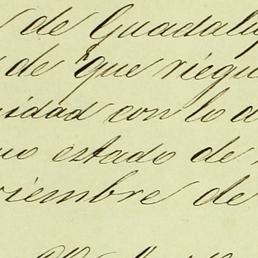 de Guadalu
de que riegu
nidad con lo d
uo estado de
viembre de